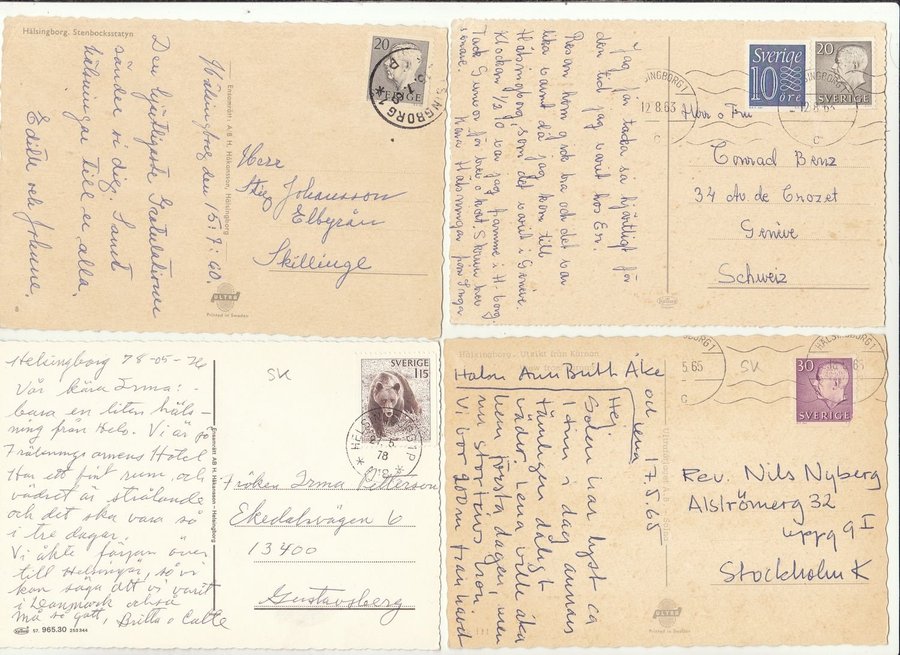 Hälsingborg. Stenbocksstatyn
Hälsingborg den 15:7:60.
Den hjärtligaste Gratulationer
sänder vi dig. Samt
hälsningar till er alla.
Edith och Johnne.
Ensamrätt: A/B H. Håkonsson, Hälsingborg
20
SVERIGE
Herr
Stig Johansson
Elbyrån
Skillinge
8
ULTRA
Printed in Sweden
Jag får tacka så hjärtligt för
den tid jag varit hos Er.
Resan hem gick bra och det var
lika varmt då jag kom till
Hälsingborg, som det varit i Genève.
Klockan 1/2 10 var jag hemma i H-borg.
Tack Gunvor för brev o kort. Skriver mer
senare. Kära Hälsningar från Inga.
Sverige
10
öre
20
SVERIGE
12.8.63
Herr o Fru
Conrad Benz
34 Av de Crozet
Genève
Schweiz
Helsingborg 78-05-26
Vår kära Irma:-
bara en liten häls-
ning från Hels. Vi är på
Frälsningsarmens Hotel
Har ett fint rum, och
vädret är strålande
och det ska vara så
i tre dagar.
Vi åkte färjan över
till Helsingör, så vi
kan säga att vi varit
i Danmark också
Må så gott, Britta o Calle
57. 965.30 250344
Ensamrätt AB H. Håkansson - Helsingborg
SK
SVERIGE
115
78
Fröken Irma Petterson
Ekedalsvägen 6
13400
Gustavsberg
Hälsingborg. Utsikt från Kärnan
Halsn Ann Britt Åke
och Lena
17.5.65
Hej
Solen har lyst ca
1 tim i dag annars
tämligen dåligt
väder. Lena ville åka
hem första dagen, men
nu stortrivs hon.
Vi bor 200 m från hand
SK
5.65
HÄLSINGBORG 1
30
SVERIGE
Rev. Nils Nyberg
Alströmerg 32
uppg 9 I
Stockholm K
ULTRA
Printed in Sweden